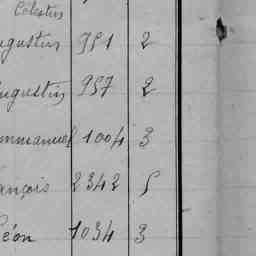 Célestin
ugustin 951 2
ugustin 957 2
mmanuel 1004 3
ançois 2342 5
éon 1034 3